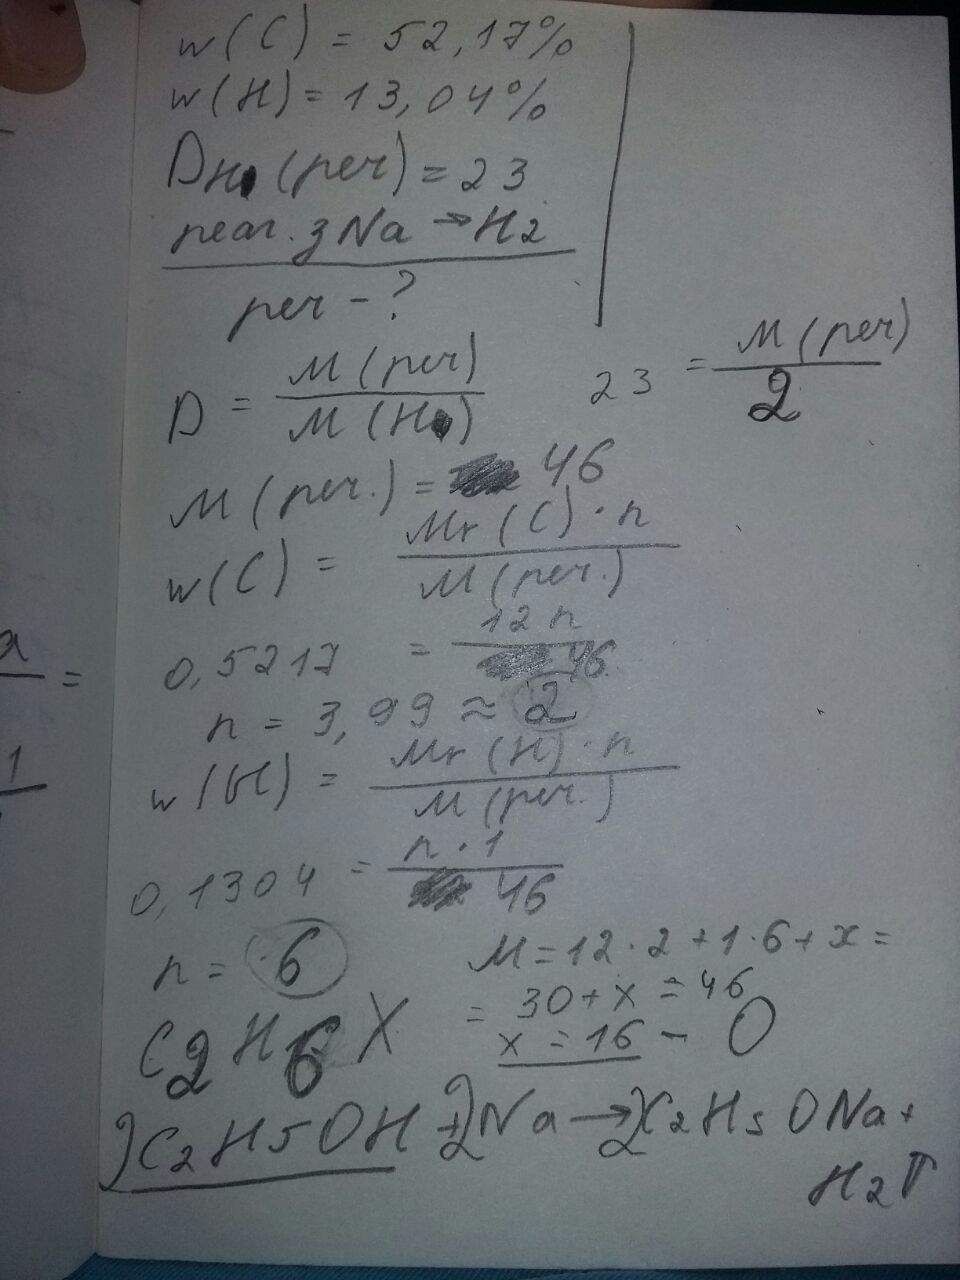 w(C) = 52,17%
w(H) = 13,04%
D H (реч) = 23
реаг. з Na → H2
реч - ?
D = M(реч) / M(H ) 23 = M(реч) / 2
M(реч.) = 46
w(C) = Mr(C)·n / M(реч.)
0,5217 = 12n / 46
n = 3,99 ≈ 2
w(H) = Mr(H)·n / M(реч.)
0,1304 = n·1 / 46
n = 6 M = 12·2 + 1·6 + x =
= 30 + x = 46
C2H6X x = 16 - O
2C2H5OH + 2Na → 2C2H5ONa +
H2↑
л
=
1